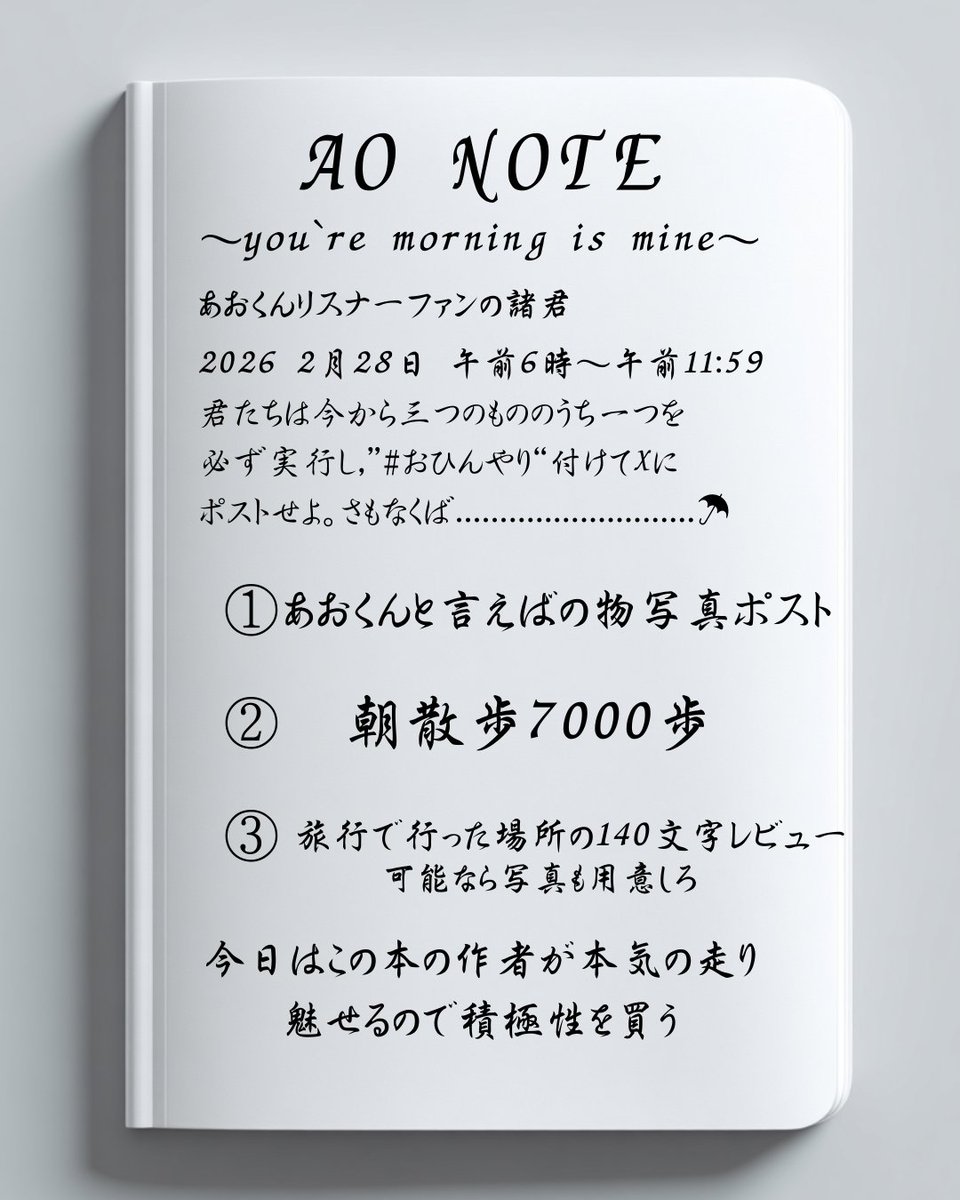 AO NOTE
～you`re morning is mine～
あおくんリスナーファンの諸君
2026 2月28日 午前6時～午前11:59
君たちは今から三つのもののうち一つを
必ず実行し,”#おひんやり“付けてXに
ポストせよ。さもなくば...........................☂
①あおくんと言えばの物写真ポスト
② 朝散歩7000歩
③ 旅行で行った場所の140文字レビュー
可能なら写真も用意しろ
今日はこの本の作者が本気の走り
魅せるので積極性を買う